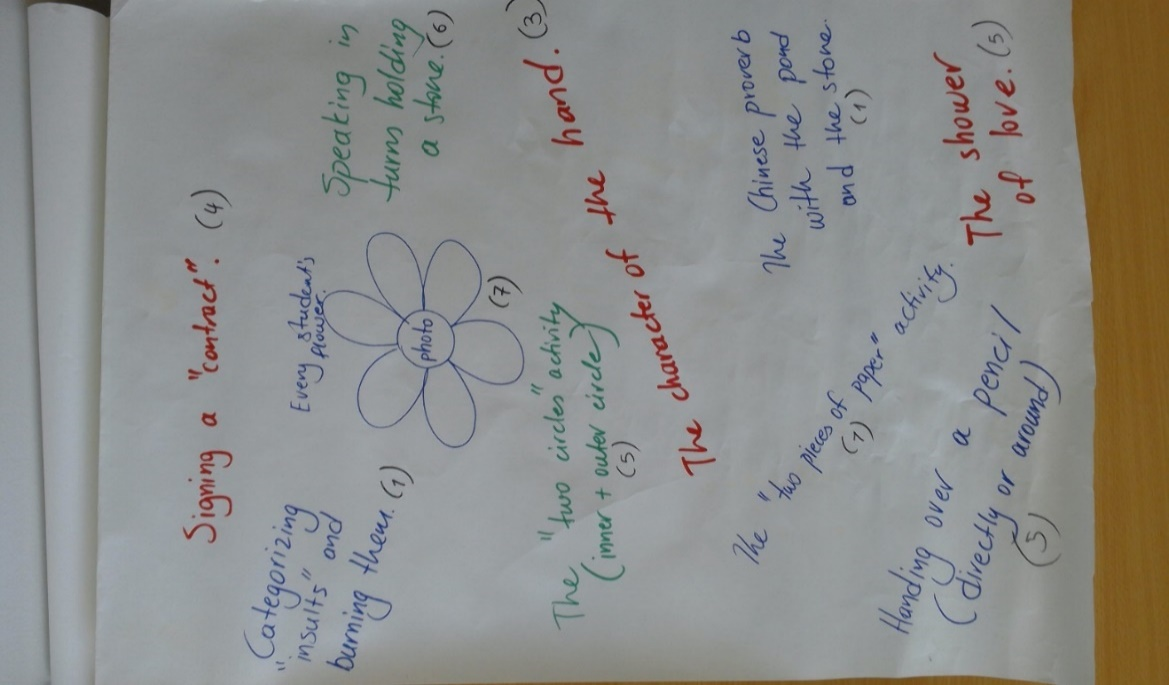 Signing a "contract". (4)
Categorizing
"insults" and
burning them. (1)
Every student's
flower.
photo
(7)
Speaking in
turns holding
a stone. (6)
The "two circles" activity
(inner + outer circle)
(5)
The character of the hand. (3)
The "two pieces of paper" activity.
(1)
The Chinese proverb
with the pond
and the stone.
(1)
Handing over a pencil
(directly or around)
(5)
The shower
of love. (5)